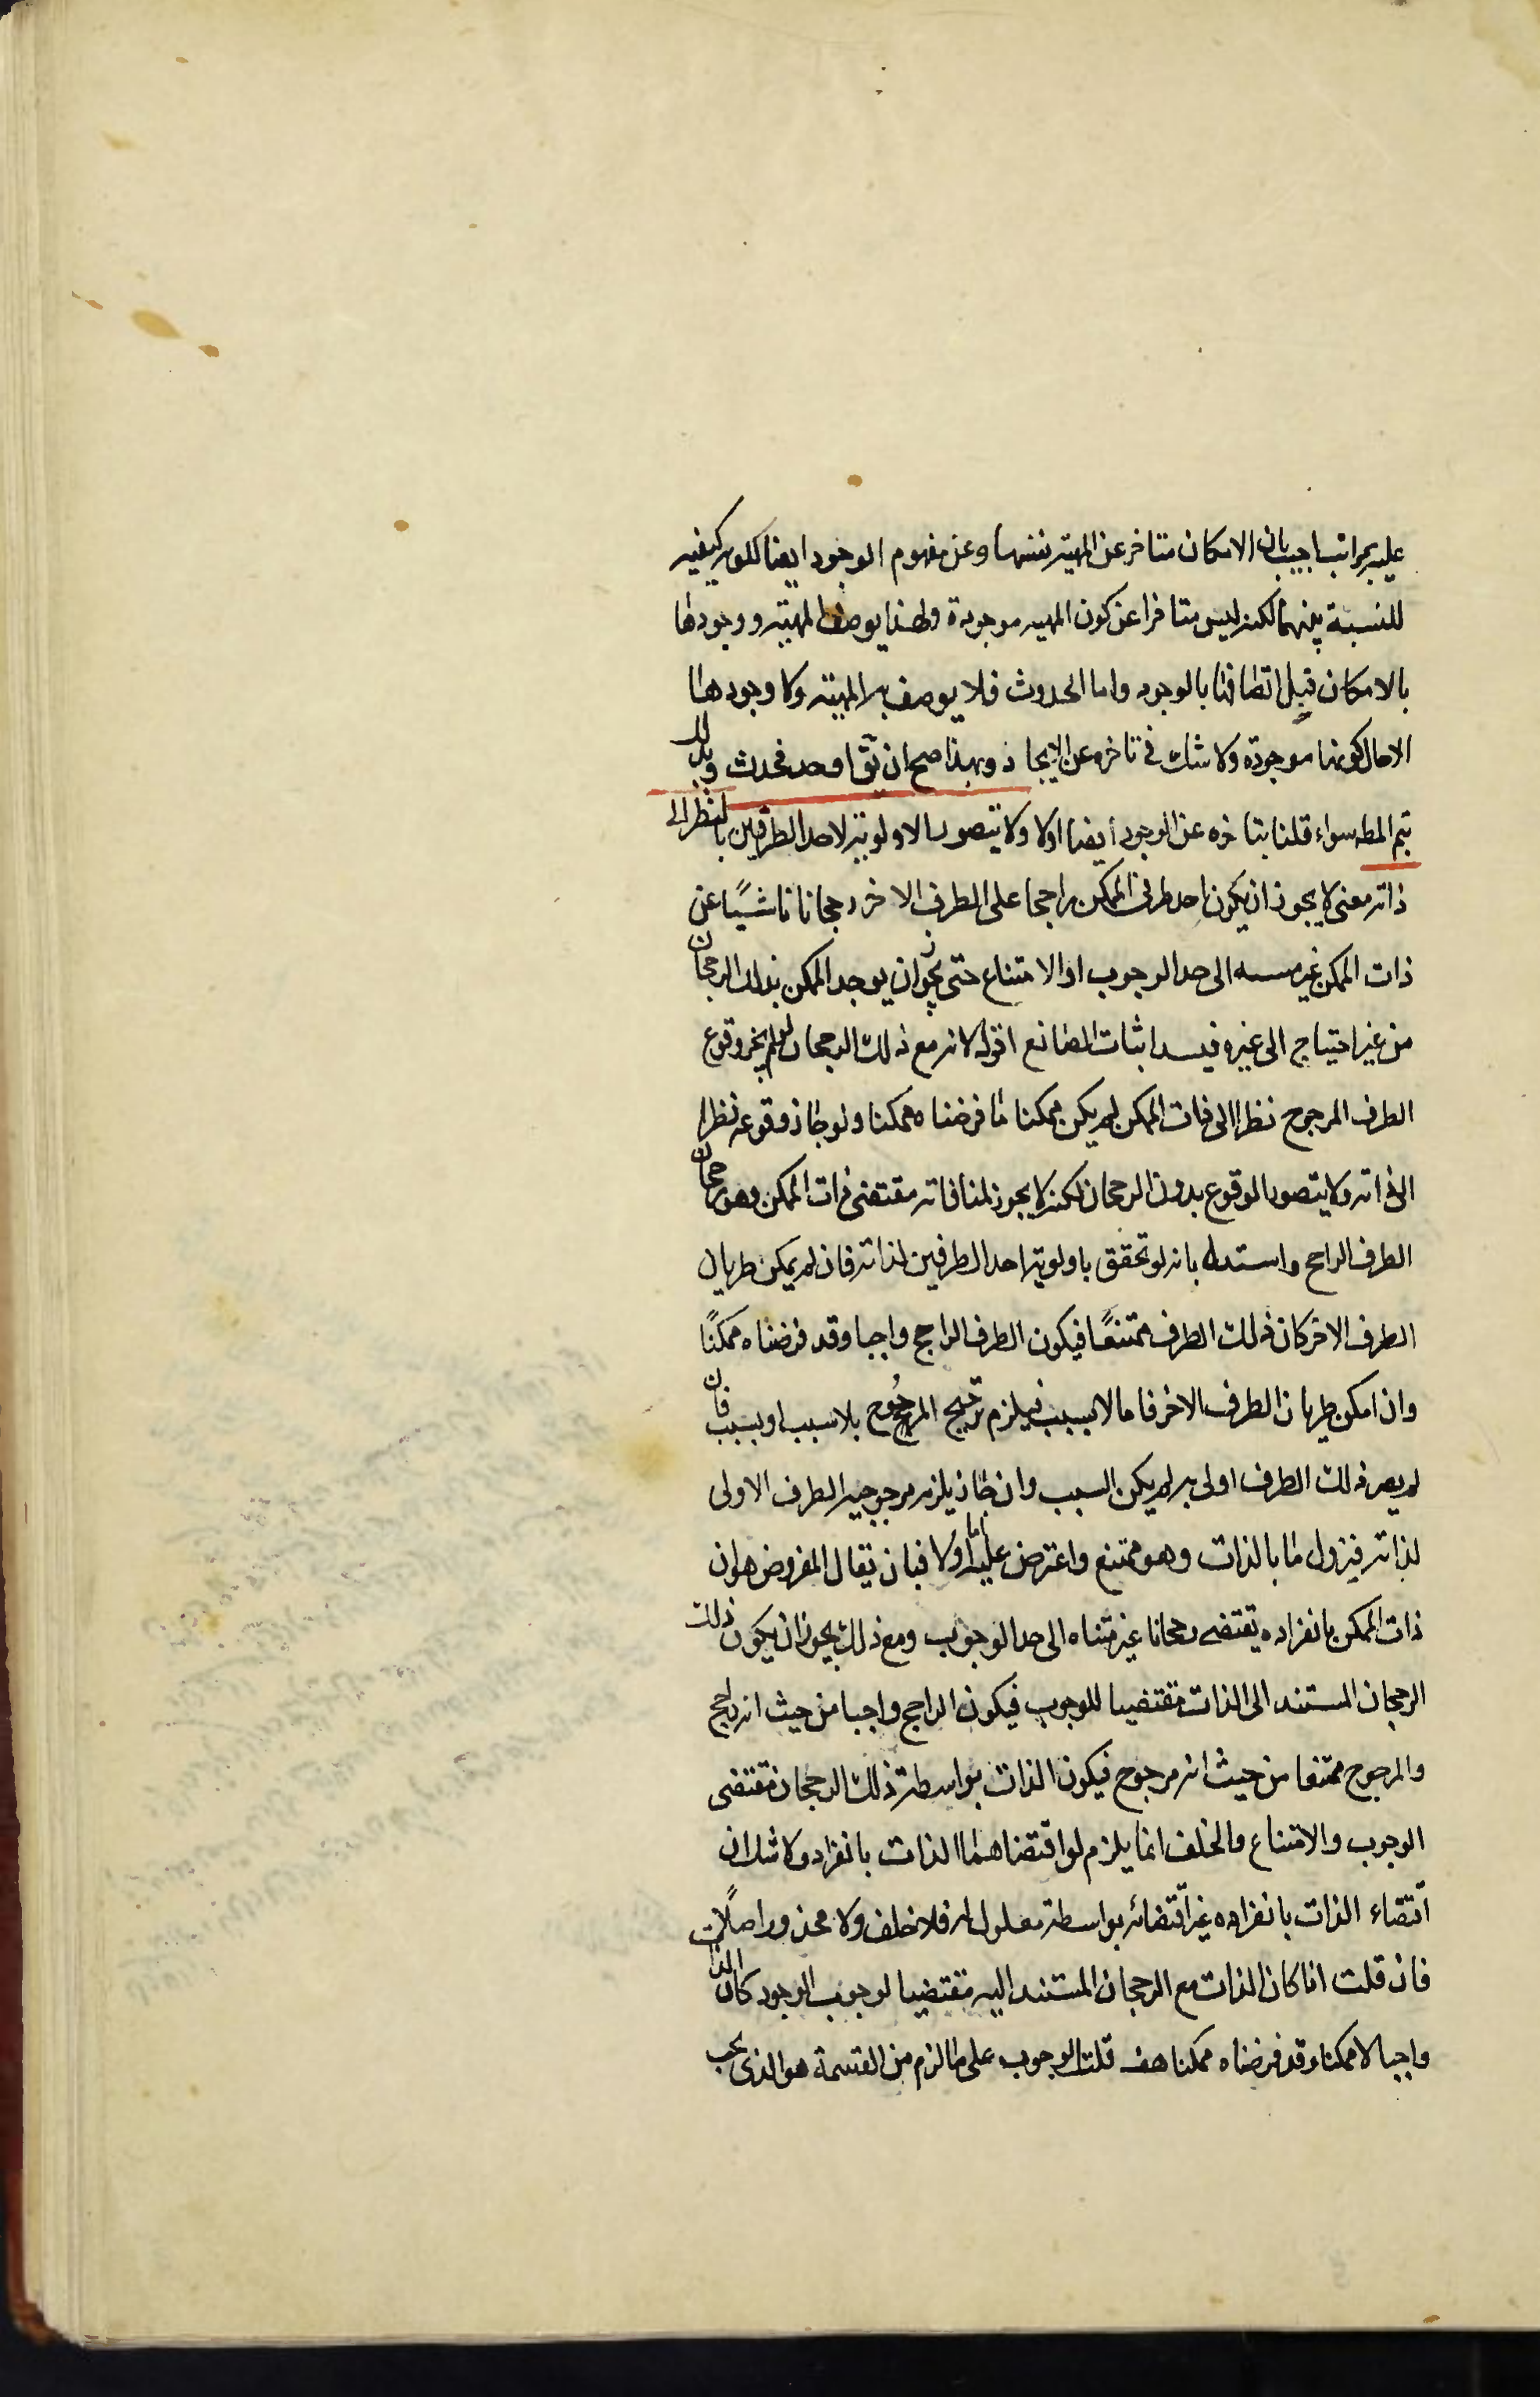 عليه بمراتب اجيب بان الامكان متاخر عن المهية نفسها وعن مفهوم الوجود ايضا لكونه كيفيه
للنسبة بينهما لكنه ليس متاخرا عن كون المهيه موجودة ولهذا يوصف المهية ووجودها
بالامكان قبل اتصافها بالوجود واما الحدوث فلا يوصف به المهية ولا وجودها
الا حال كونها موجودة ولا شك في تاخره عن الايجاد وبهذا صح ان يق اوجد فحدث وبذلك
يتم المط سواء قلنا بتاخره عن الوجود أيضا اولا ولا يتصور الاولوية لاحد الطرفين بالنظر الى
ذاته معنى لا يجوز ان يكون احد طرفى الممكن راجحا على الطرف الاخر رجحانا ناشئًا عن
ذات الممكن غير الى حد الوجوب او الامتناع حتى يجوز ان يوجد الممكن بذلك الرجحان
من غير احتياج الى غيره فيسد اثبات الصانع اقول لانه مع ذلك الرجحان لو لم يجز وقوع
الطرف المرجوح نظرا الى ذات الممكن لم يكن ممكنا ما فرضناه ممكنا ولو جاز وقوعه نظرا
الى ذاته ولا يتصور الوقوع بدون الرجحان لكنه لا يجوز لمنافاته مقتضى ذات الممكن وهو رجحان
الطرف الراجح واستدل بانه لو تحقق باولوية احد الطرفين لذاته فان لم يمكن طريان
الطرف الاخر كان ذلك الطرف ممتنعًا فيكون الطرف الراجح واجبا وقد فرضناه ممكنًا
وان امكن طريان الطرف الاخر فاما لا بسبب فيلزم ترجيح المرجُوح بلا سبب او بسبب فان
لم يصر ذلك الطرف اولى به لم يكن السبب وان صار يلزم مرجوحية الطرف الاولى
لذاته فيزول ما بالذات وهو ممتنع واعترض عليه اما اولا فبان يقال المفروض هو ان
ذات الممكن بانفراده يقتضى رجحانا غير متناه الى حد الوجوب ومع ذلك يجوز ان يكون ذلك
الرجحان المستند الى الذات مقتضيا للوجوب فيكون الراجح واجبا من حيث انه راجح
والمرجوح ممتنعا من حيث انه مرجوح فيكون الذات بواسطة ذلك الرجحان مقتضى
الوجوب والامتناع والخلف انما يلزم لو اقتضاهما الذات بانفراده ولا شك ان
اقتضاء الذات بانفراده غير اقتضائه بواسطة معلول له فلا خلف ولا محذور اصلًا
فان قلت اذا كان الذات مع الرجحان المستند اليه مقتضيا لوجوب الوجود كان الذات
واجبا لا ممكنا وقد فرضناه ممكنا هف قلت الوجوب على ما لزم من القسمة هو الذى يجب